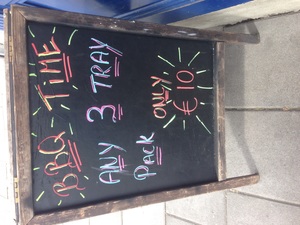 BBQ TiME
ANY 3 TRAY
PacK ONLY
€10